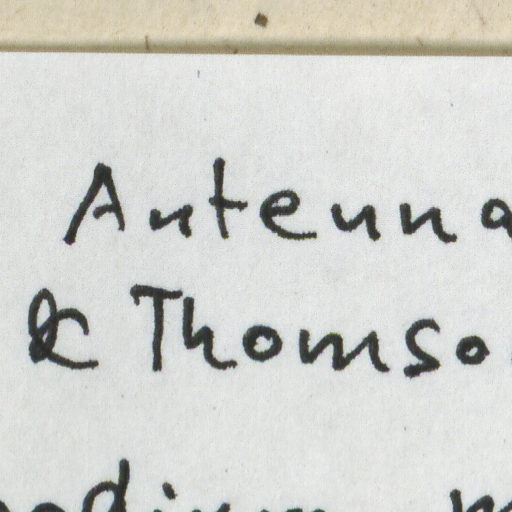 Antenna
& Thomso